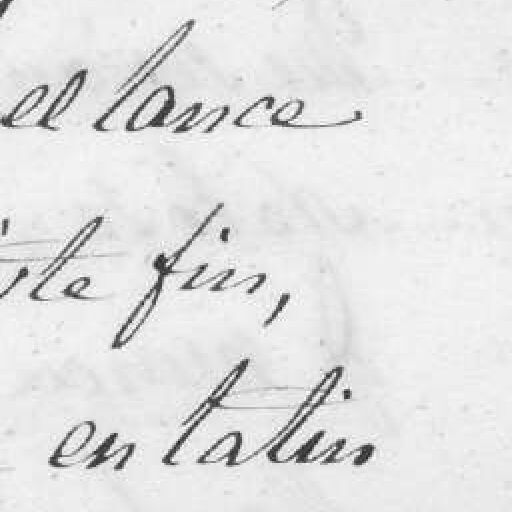 el lance
iste fin,
en latin